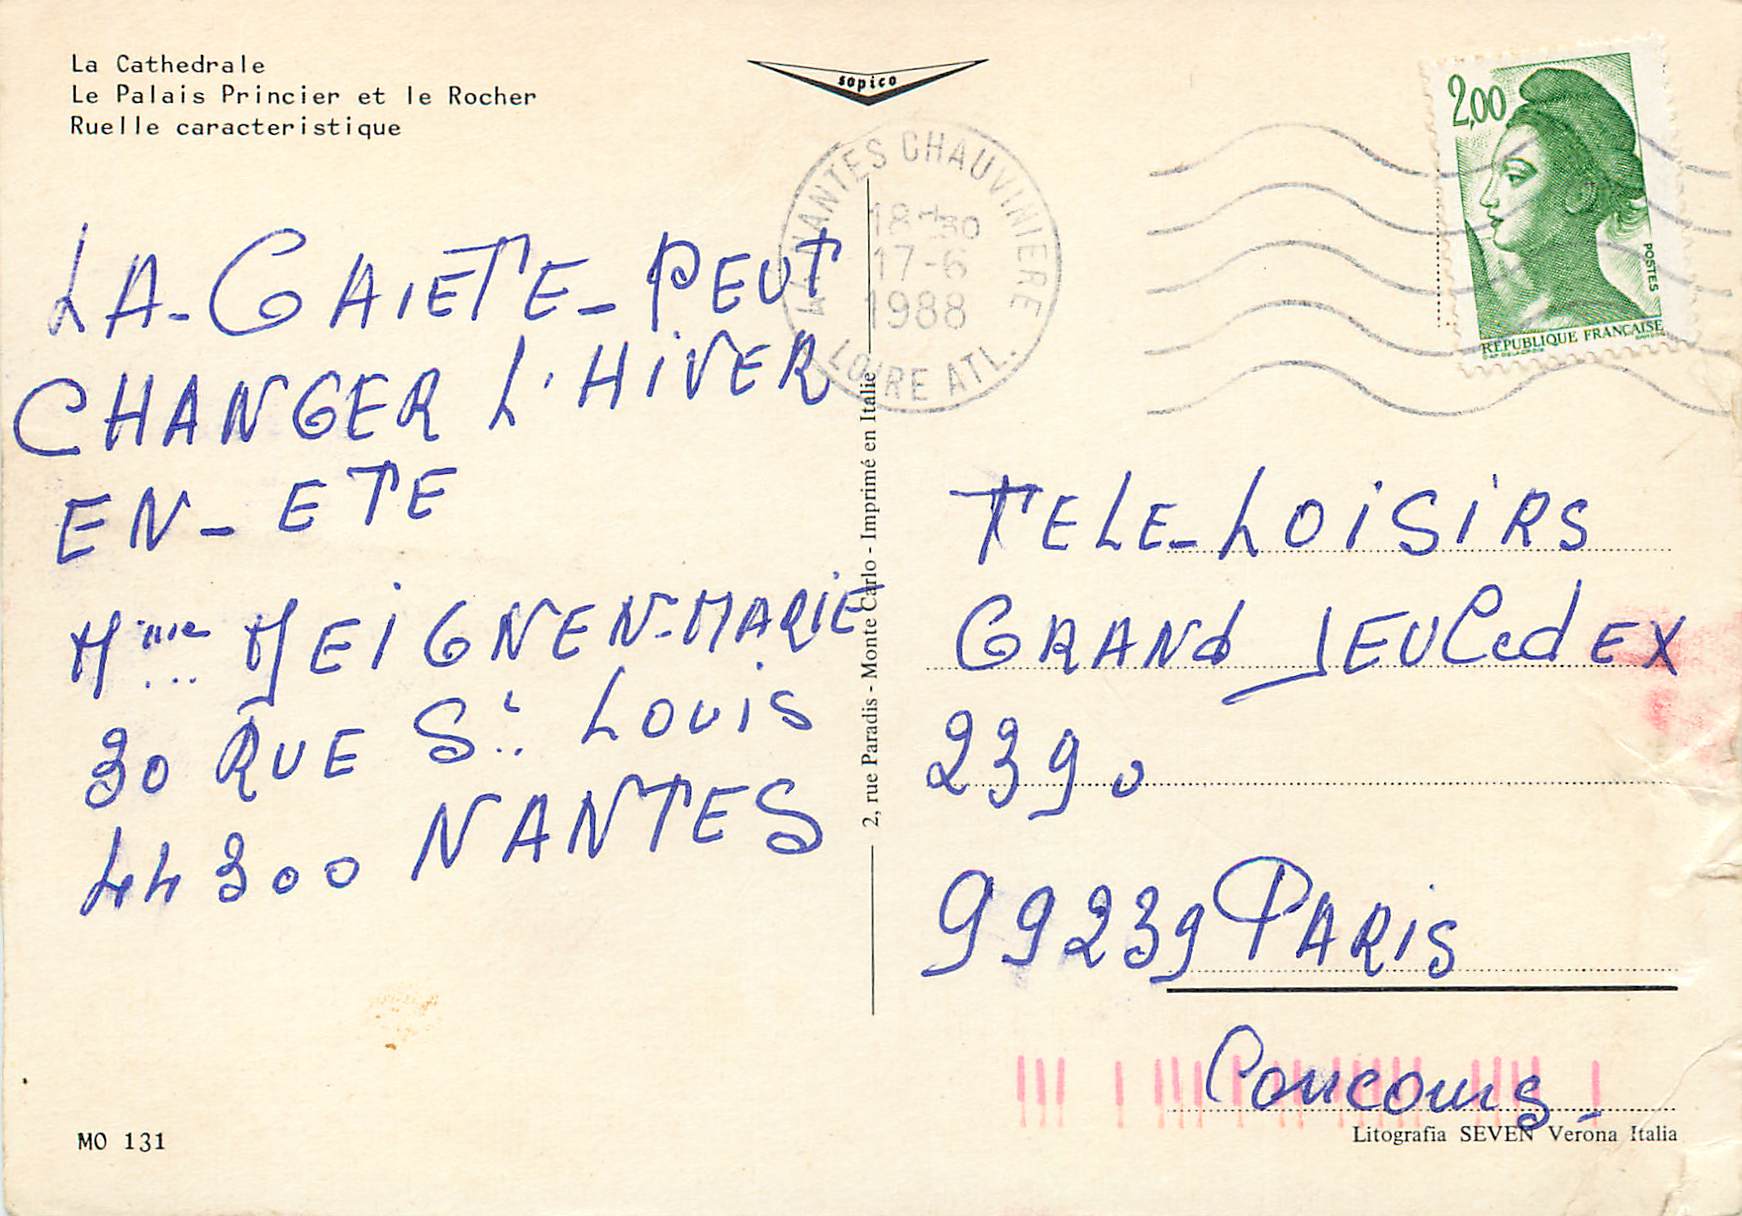 La Cathedrale
Le Palais Princier et le Rocher
Ruelle caracteristique
sapico
44 NANTES CHAUVINIERE
18-30
17-6
1988
LOIRE ATL.
2,00
POSTES
RÉPUBLIQUE FRANÇAISE
LA-GAIETE-PEUT
CHANGER L'HIVER
EN-ETE
Mme MEIGNEN-MARIE
30 RUE St LOUIS
44300 NANTES
2, rue Paradis - Monte Carlo - Imprimé en Italie
TELE-LOISIRS
GRANd JEU CedEX
2390
99239 PARIS
Concours-
MO 131
Litografia SEVEN Verona Italia